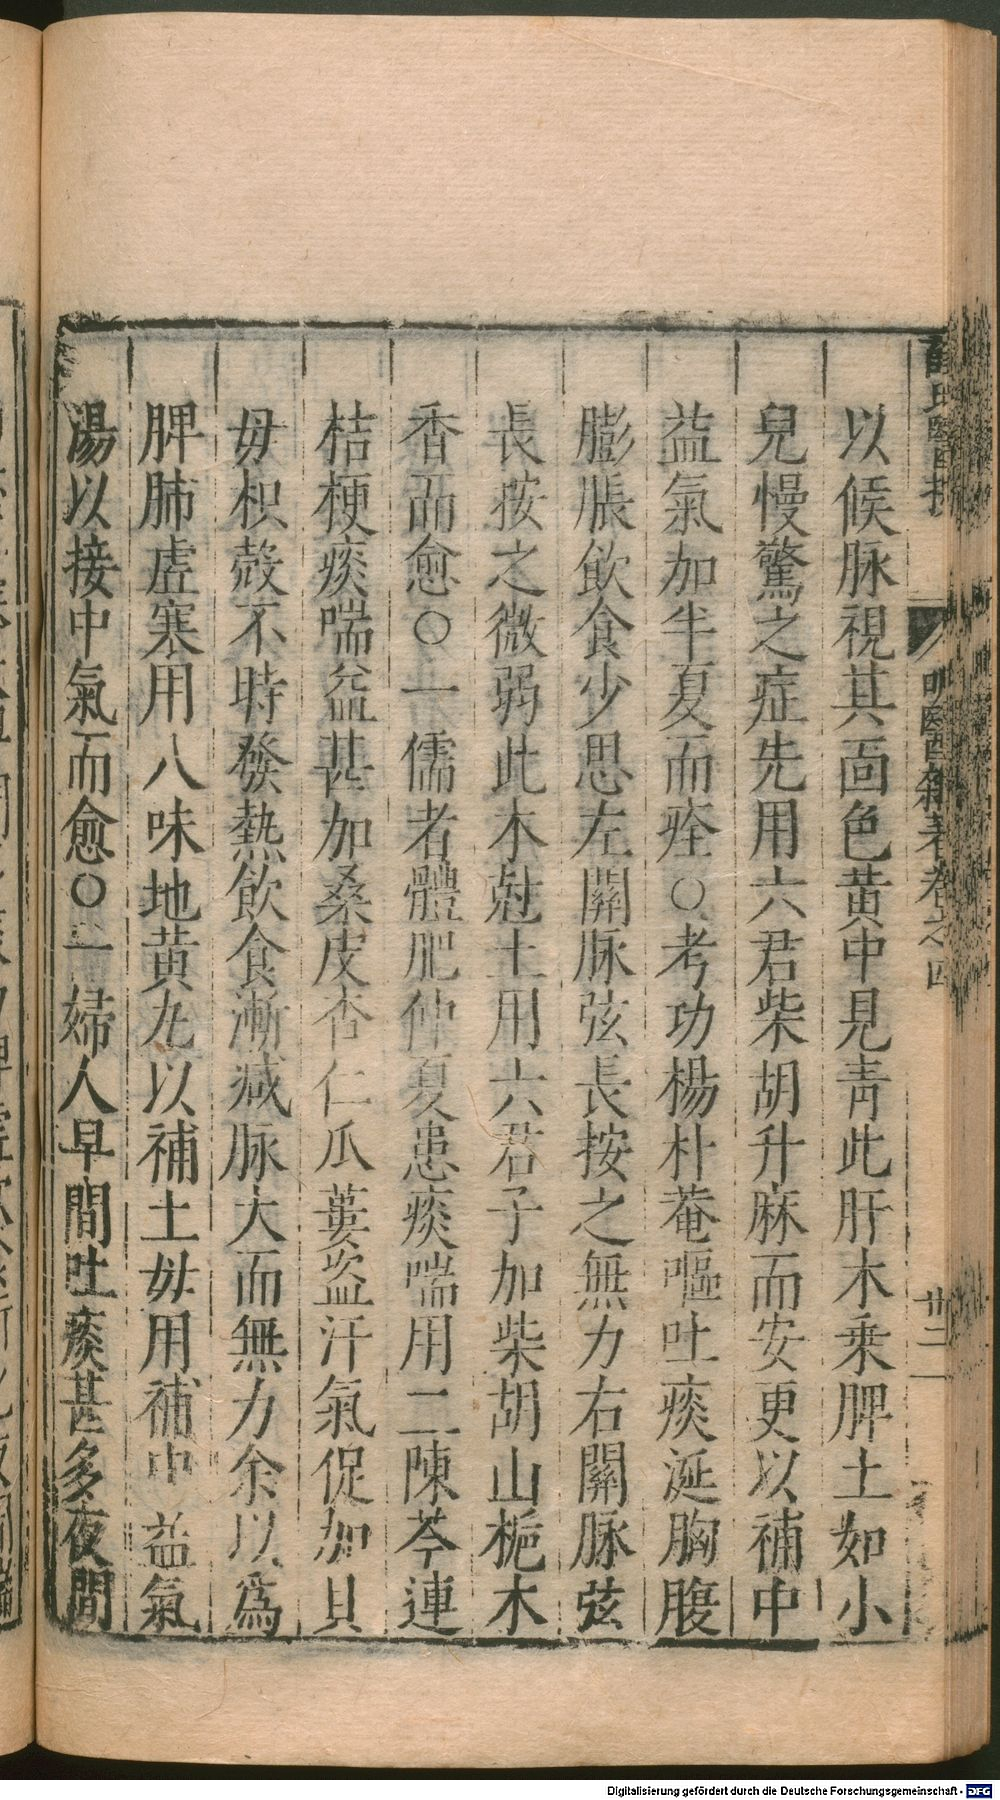 薛氏醫按 明醫雜著卷之四 廿二
以候脉視其面色黄中見青此肝木乘脾土如小
兒慢驚之症先用六君柴胡升麻而安更以補中
益氣加半夏而痊○考功楊朴菴嘔吐痰涎胸腹
膨脹飲食少思左關脉弦長按之無力右關脉弦
長按之微弱此木尅土用六君子加柴胡山梔木
香而愈○一儒者體肥仲夏患痰喘用二陳芩連
桔梗痰喘益甚加桑皮杏仁瓜蔞盗汗氣促加貝
母枳殻不時發熱飲食漸减脉大而無力余以爲
脾肺虚寒用八味地黄丸以補土母用補中益氣
湯以接中氣而愈○一婦人早間吐痰甚多夜間
Digitalisierung gefördert durch die Deutsche Forschungsgemeinschaft - DFG